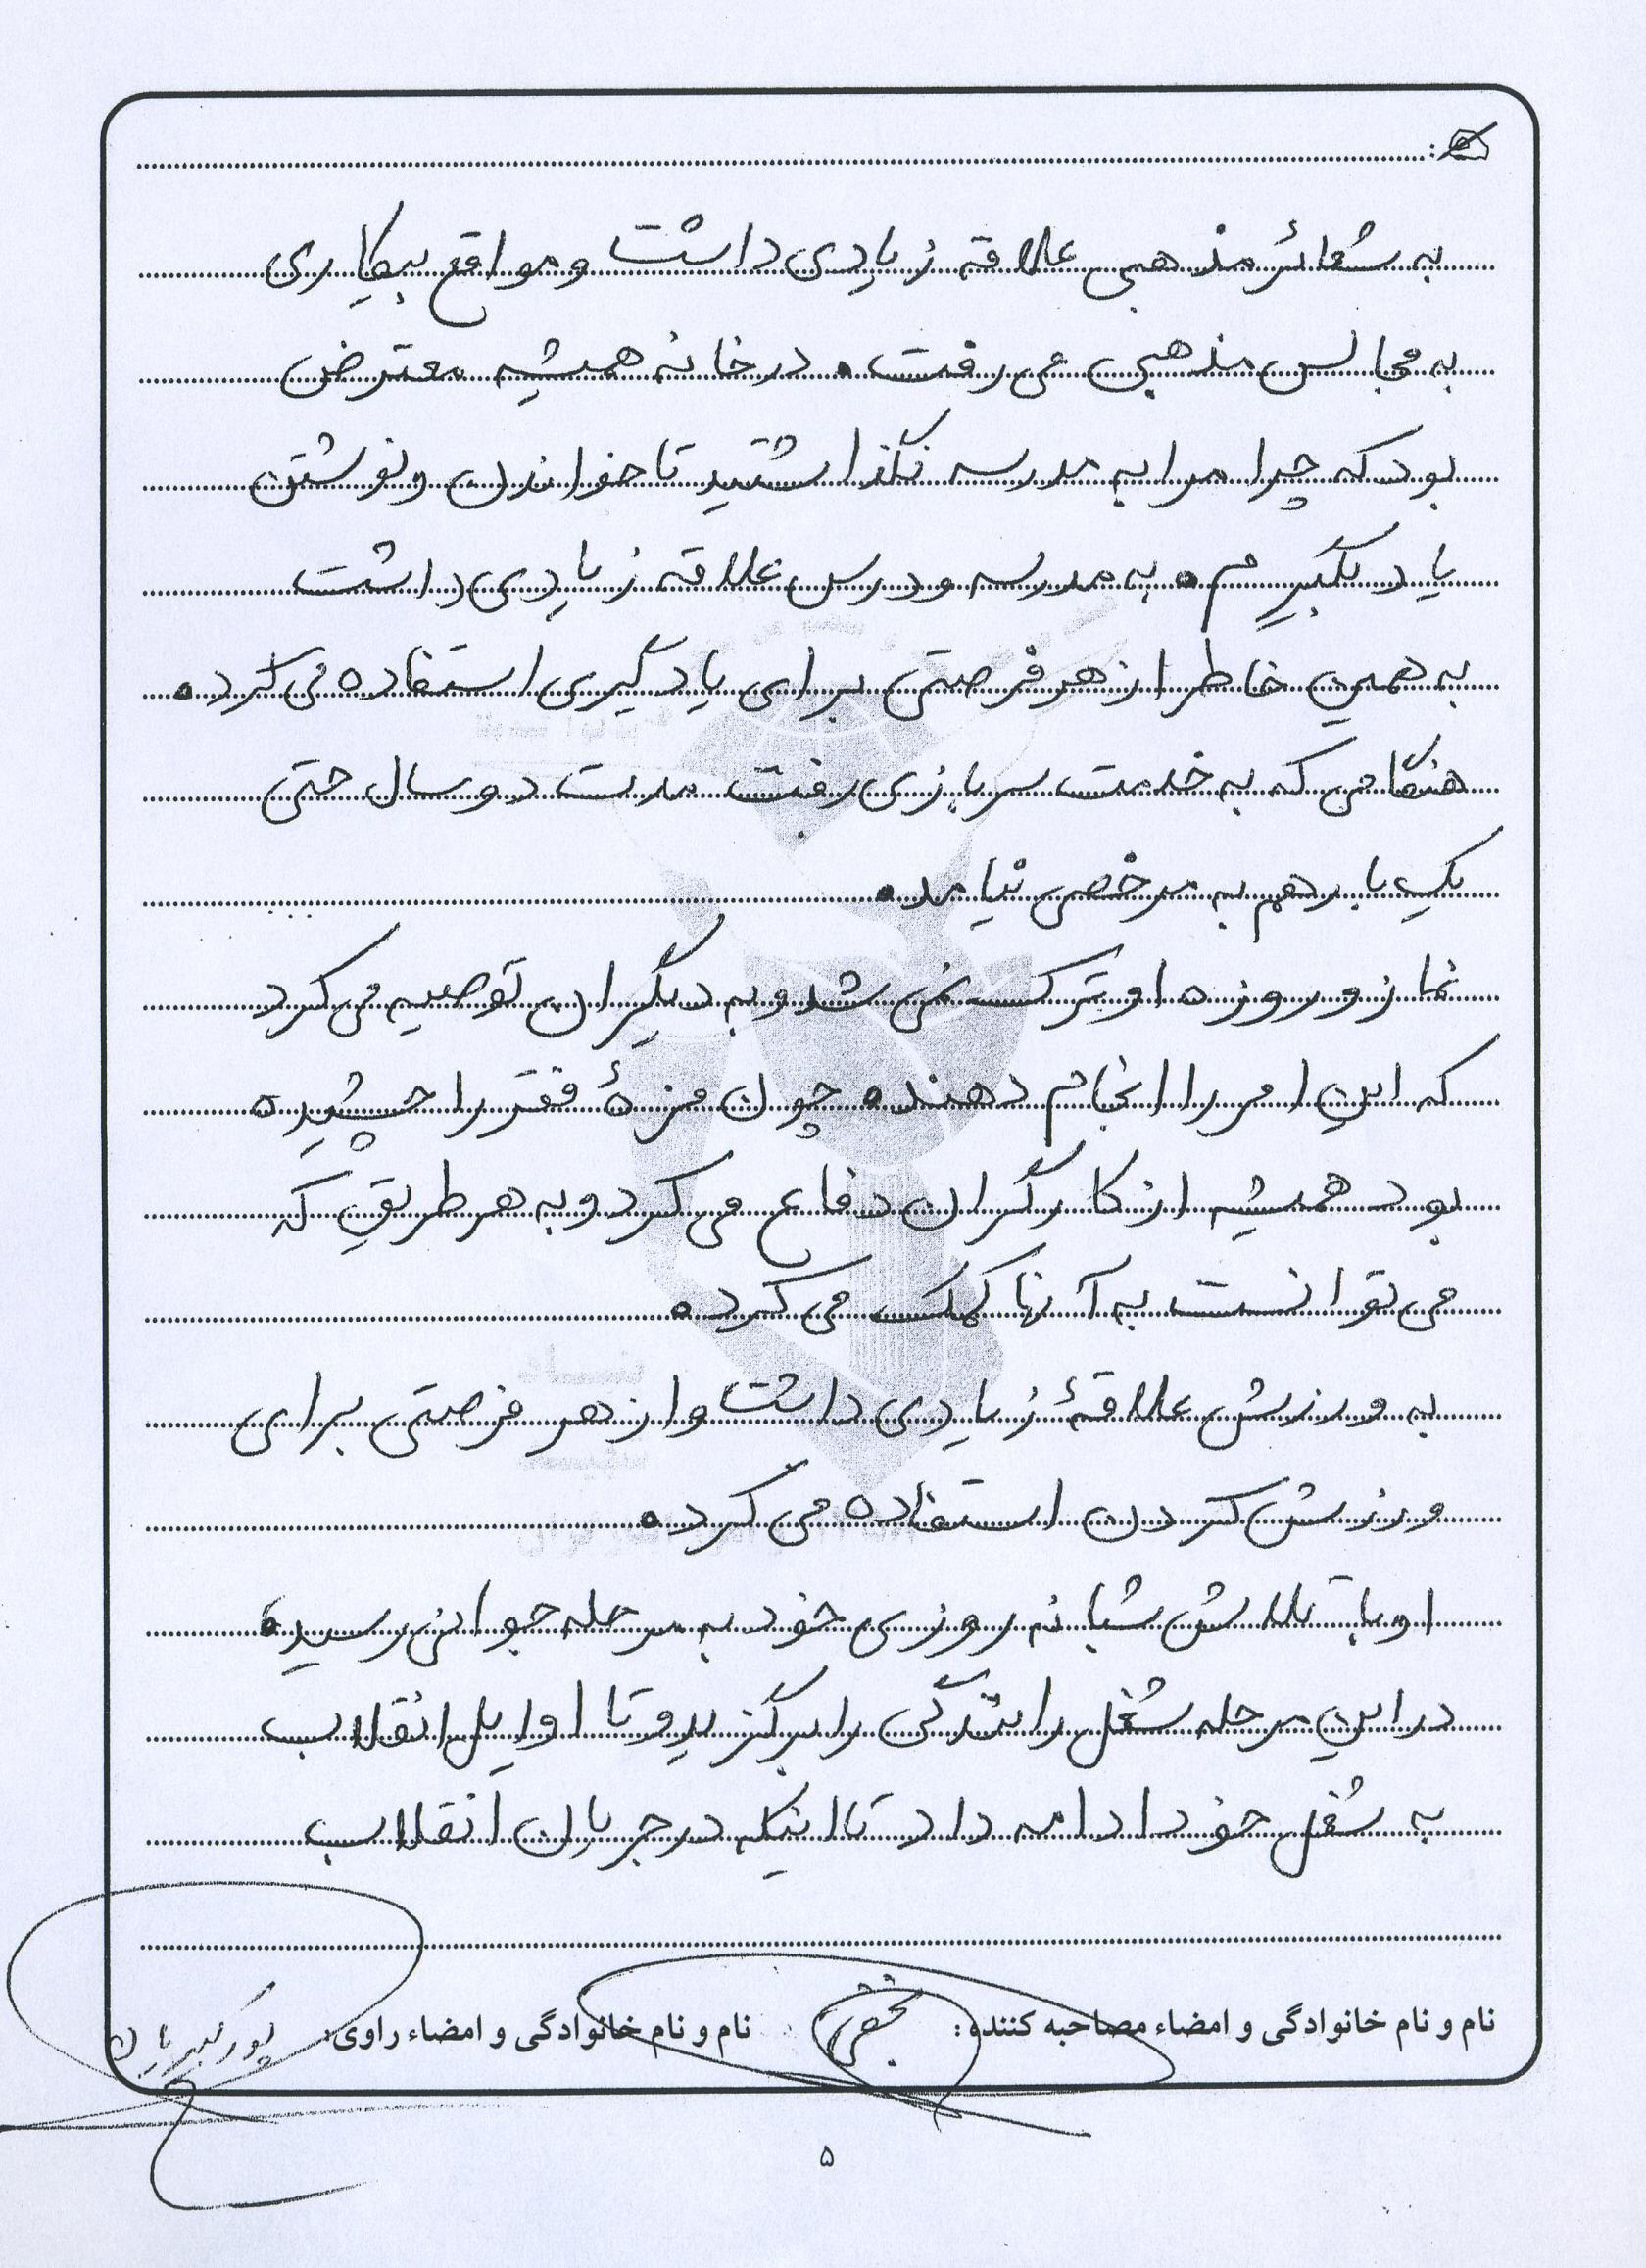 به شعائر مذهبی علاقه زیادی داشت و مواقع بیکاری
به مجالس مذهبی می رفت. در خانه همیشه معترض
بود که چرا مرا به مدرسه نگذاشتید تا خواندن و نوشتن
یاد بگیرم. به مدرسه و درس علاقه زیادی داشت
به همین خاطر از هر فرصتی برای یادگیری استفاده می کرد.
هنگامی که به خدمت سربازی رفت مدت دو سال حتی
یک بار هم به مرخصی نیامد.
نماز و روزه او ترک نمی شد و به دیگران توصیه می کرد
که این امر را انجام دهند. چون مزهٔ فقر را چشیده
بود همیشه از کارگران دفاع می کرد و به هر طریق که
می توانست به آنها کمک می کرد.
به ورزش علاقهٔ زیادی داشت و از هر فرصتی برای
ورزش کردن استفاده می کرد.
او با تلاش شبانه روزی خود به مرحله جوانی رسید.
در این مرحله شغل رانندگی را برگزید و تا اوایل انقلاب
به شغل خود ادامه داد تا اینکه در جریان انقلاب
نام و نام خانوادگی و امضاء مصاحبه کننده: نام و نام خانوادگی و امضاء راوی:
۵